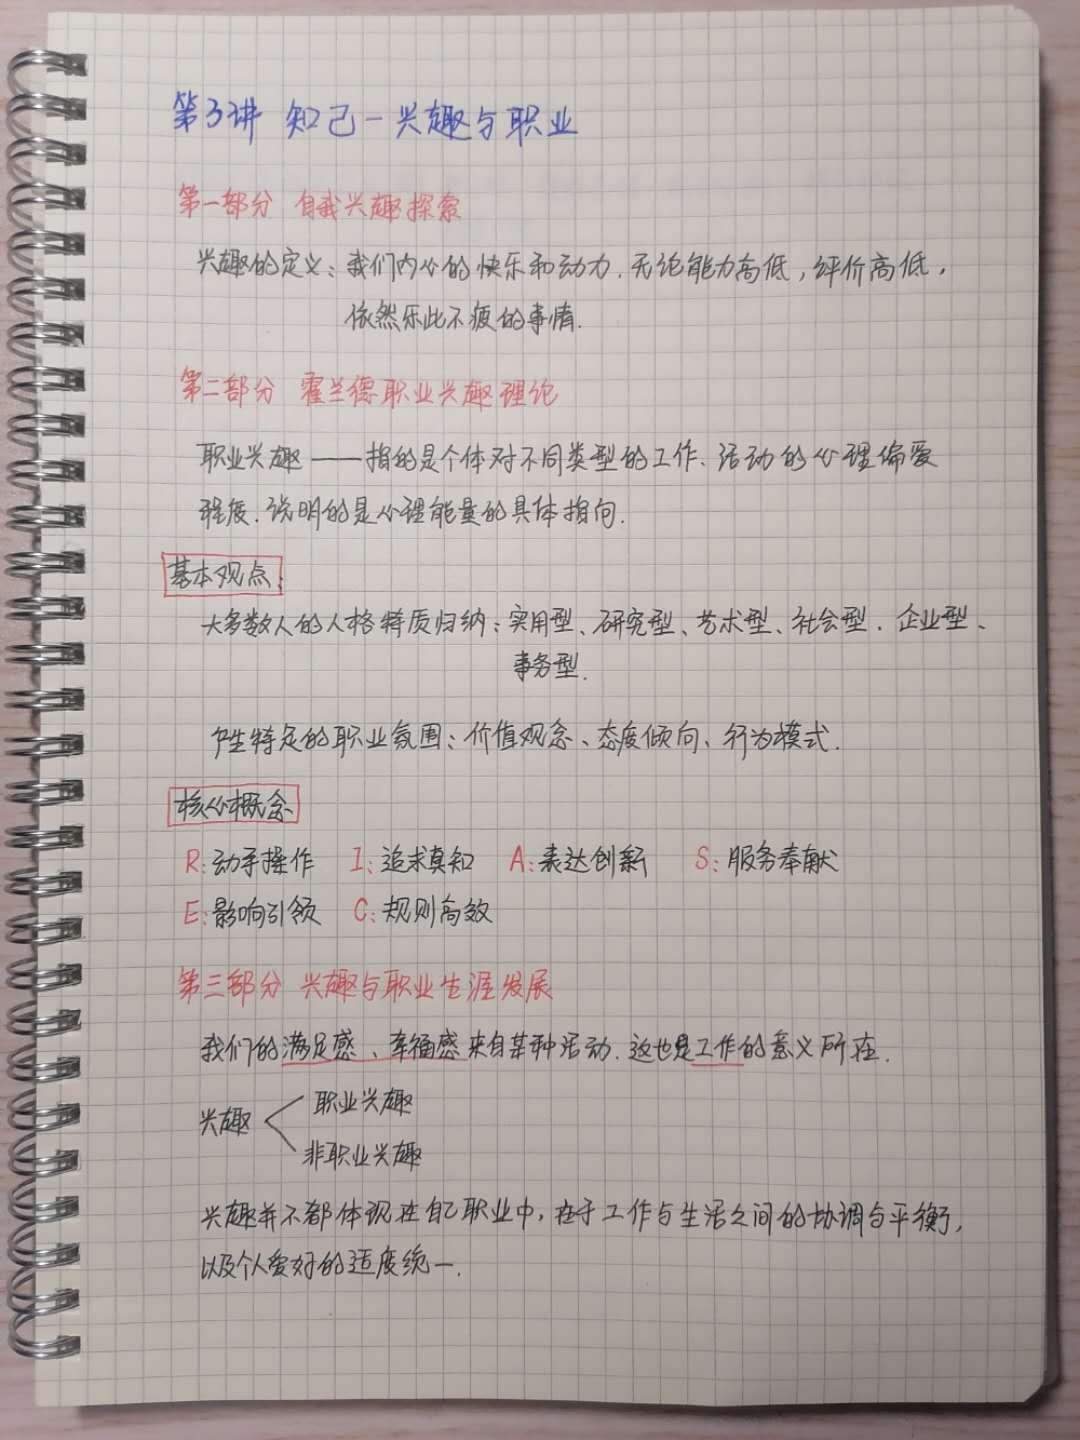 第3讲 知己一兴趣与职业
第一部分 自我兴趣探索
兴趣的定义：我们内心的快乐和动力，无论能力高低，评价高低，
依然乐此不疲的事情.
第二部分 霍兰德职业兴趣理论
职业兴趣——指的是个体对不同类型的工作、活动的心理偏爱
程度，说明的是心理能量的具体指向.
基本观点：
大多数人的人格特质归纳：实用型、研究型、艺术型、社会型、企业型、
事务型.
产生特定的职业氛围：价值观念、态度倾向、行为模式.
核心概念
R：动手操作 I：追求真知 A：表达创新 S：服务奉献
E：影响引领 C：规则高效
第三部分 兴趣与职业生涯发展
我们的满足感、幸福感来自某种活动，这也是工作的意义所在.
职业兴趣
兴趣
非职业兴趣
兴趣并不都体现在自己职业中，在于工作与生活之间的协调与平衡，
以及个人爱好的适度统一.